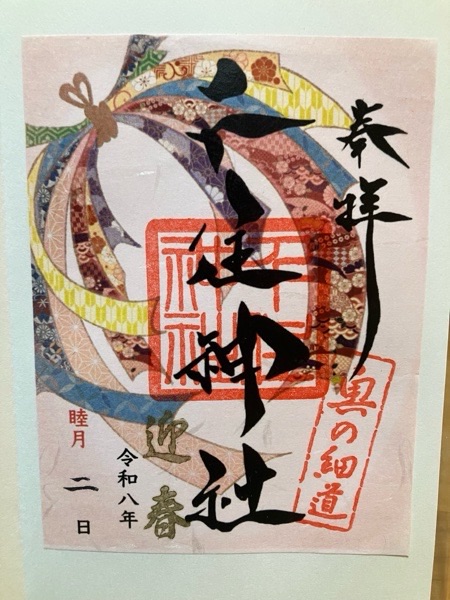 奉拝
千住神社
千住
神社
奥の細道
迎春
令和八年
睦月
二日